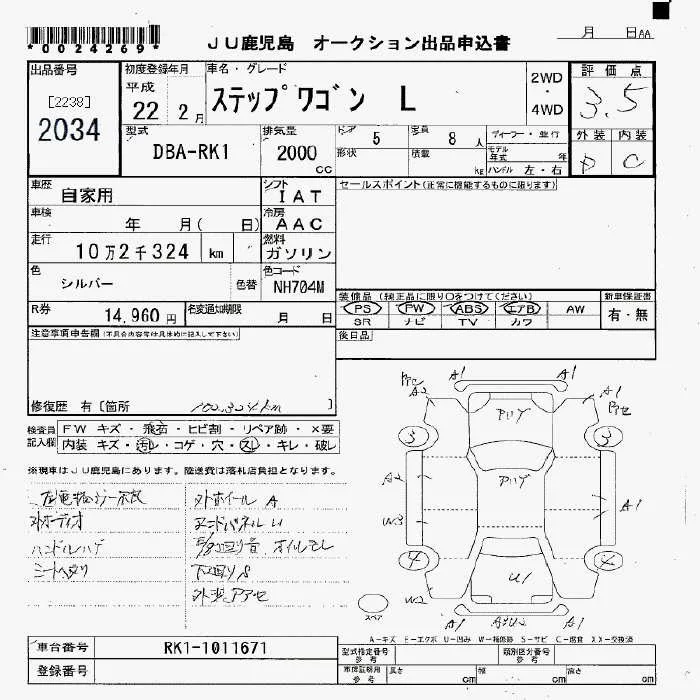 *0024269*
JU鹿児島 オークション出品申込書
月 日AA
出品番号
[2238]
2034
初度登録年月
平成
22 2月
車名・グレード
ステップワゴン L
2WD
・
4WD
評価点
3.5
外装 内装
D C
型式
DBA-RK1
排気量
2000
CC
ドア 5
定員 8 人
形状
積載 kg
ディーラー・並行
モデル年式 年
ハンドル 左・右
車歴
自家用
シフト
IAT
車検
年 月( 日)
冷房
AAC
走行
10万2千324 km
燃料
ガソリン
色
シルバー
色替
色コード
NH704M
R券
14,960 円
名変通知期限
月 日
セールスポイント(正常に機能するものに限ります)
装備品 (純正品に限り○をつけてください)
PS PW ABS エアB AW
SR ナビ TV カワ
新車保証書
有・無
後日品
注意事項申告欄(不具合内容等は具体的に記入して下さい)
修復歴 有 [箇所 ]
102,324km
検査員記入欄
FW キズ・飛石・ヒビ割・リペア跡・×要
内装 キズ・汚れ・コゲ・穴・スレ・キレ・破レ
※現車はJU鹿児島にあります。陸送費は落札店負担となります。
外オーディオ
ハンドルハゲ
外ホイール A
下回りS
A1
A1
A2
A1
3
3
A2
A1
W3
4
4
U1
W2
A1
A1
スペア
A-キズ E-エクボ U-凹み W-補修跡 S-サビ C-腐食 XX-交換済
車台番号
RK1-1011671
登録番号
型式指定番号
参考
類別区分番号
参考
車庫証明用
参考
長さ cm
幅 cm
高さ cm